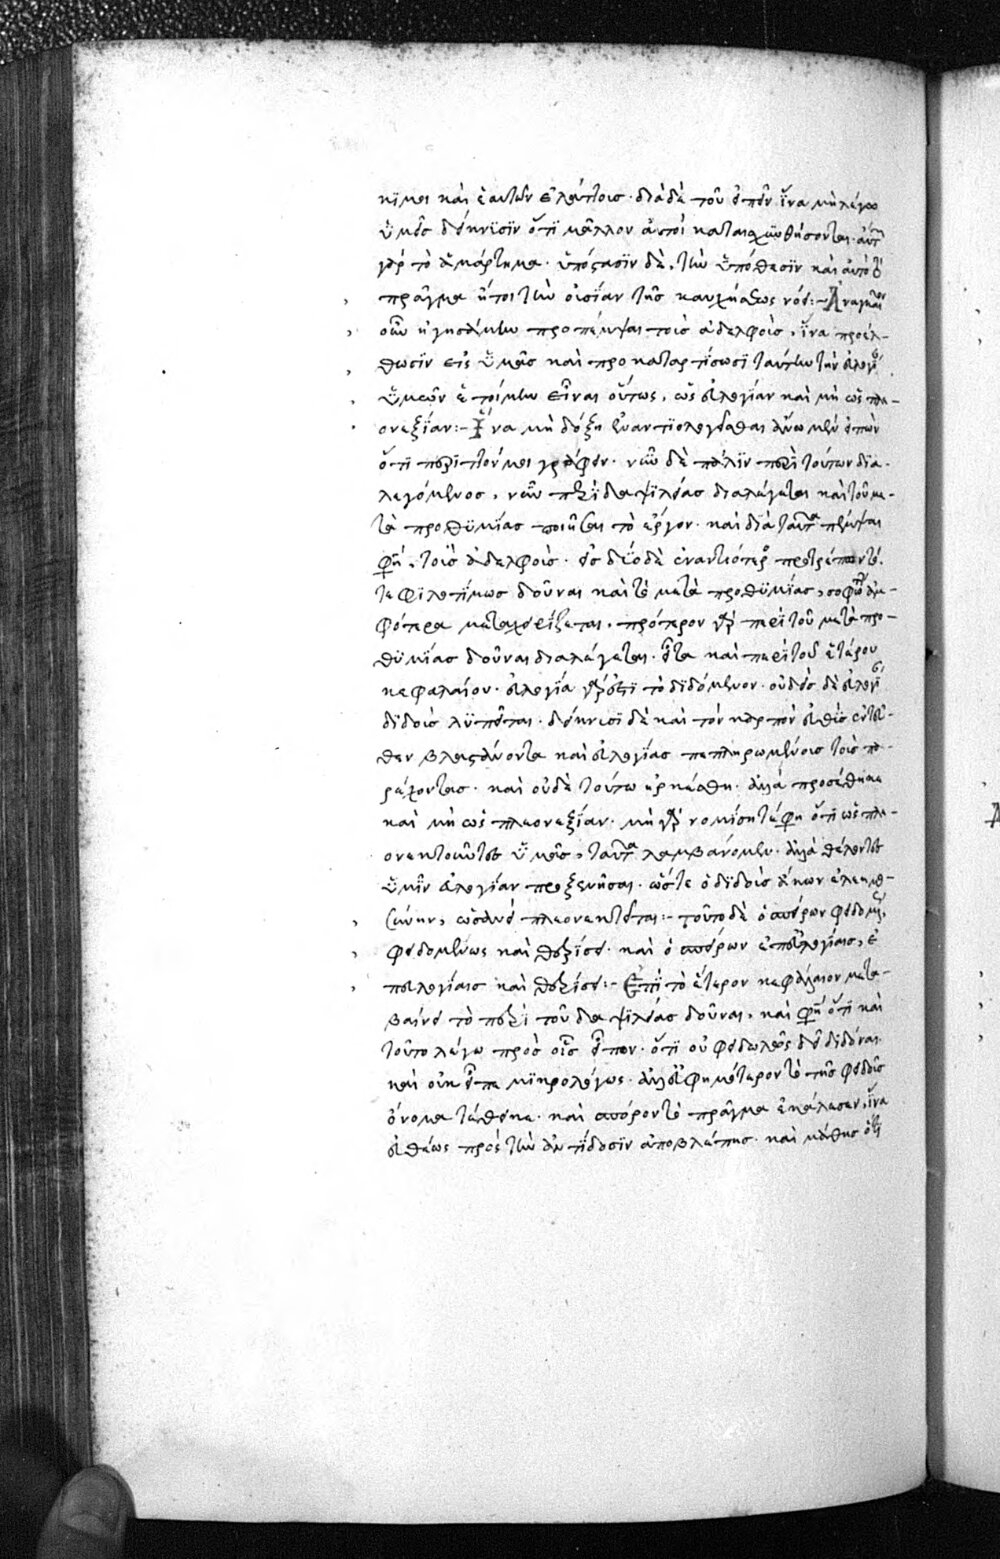 κῒμει καὶ ἑαυτῶν ἐλάττοις· διὰ δὲ τοῦ εἰπεῖν ἵνα μὴ λέγω
ὑμεῖς δείκνυσιν ὅτι μᾶλλον αὐτοὶ καταισχυνθήσονται· αὐτῶν
γὰρ τὸ ἁμάρτημα· ὑπόστασιν δὲ, τὴν ὑπόθεσιν καὶ αὐτὸ τὸ
πρᾶγμα ἤτοι τὴν οὐσίαν τῆς καυχήσεως νόει:- Ἀναγκαῖον
οὖν ἡγησάμην προπέμψαι τοὺς ἀδελφοὺς, ἵνα προέλ-
θωσιν εἰς ὑμᾶς καὶ προκαταρτίσωσι ταύτην τὴν εὐλογίαν
ὑμῶν ἑτοίμην εἶναι οὕτως, ὡς εὐλογίαν καὶ μὴ ὡς πλε-
ονεξίαν:- Ἵνα μὴ δόξῃ ἐναντιολογεῖσθαι ἄνω μὲν εἰπὼν
ὅτι περιττόν μοι γράφειν· νῦν δὲ πάλιν περὶ τούτων δια-
λεγόμενος, νῦν περὶ δαψιλείας διαλέγεται καὶ τοῦ με-
τὰ προθυμίας ποιῆσαι τὸ ἔργον· καὶ διὰ ταῦτα πέμψαι
φησὶ, τοὺς ἀδελφοὺς· εἰς δύο δὲ ἐναντιότερον προτρέπονται
τε φιλοτίμως δοῦναι καὶ τὸ μετὰ προθυμίας, σοφῶς ἀμ-
φότερα μεταχειρίζεται, πρότερον γὰρ περὶ τοῦ μετὰ προ-
θυμίας δοῦναι διαλέγεται· εἶτα καὶ περὶ τοῦ ἑτέρου
κεφαλαίου· εὐλογία γάρ ἐστι τὸ διδόμενον· οὐδεὶς δὲ εὐλογίαν
διδοὺς λυπεῖται· δείκνυσι δὲ καὶ τὸν καρπὸν εὐθὺς ἐντεῦ-
θεν βλαστάνοντα καὶ εὐλογίας πεπληρωμένους τοὺς πα-
ρέχοντας· καὶ οὐδὲ τούτῳ ἠρκέσθη· ἀλλὰ προσέθηκε
καὶ μὴ ὡς πλεονεξίαν· μὴ γὰρ νομίσητέ φησι ὅτι ὡς πλε-
ονεκτοῦντες ὑμᾶς, ταῦτα λαμβάνομεν· ἀλλὰ θέλοντες
ὑμῖν εὐλογίαν προξενῆσαι· ὥστε ὁ διδοὺς ἄκων ἐλεημο-
σύνην, ὡσανεὶ πλεονεκτεῖται:- τοῦτο δὲ ὁ σπείρων φειδομένως,
φειδομένως καὶ θερίσει· καὶ ὁ σπείρων ἐπ' εὐλογίαις, ἐ
π' εὐλογίαις καὶ θερίσει:- Ἐπὶ τὸ ἕτερον κεφάλαιον μετα-
βαίνει τὸ περὶ τοῦ δαψιλείας δοῦναι, καὶ φησὶ ὅτι καὶ
τοῦτο λέγω πρὸς οἷς εἶπον· ὅτι οὐ φειδωλῶς δεῖ διδόναι
καὶ οὐκ εἶπε μικρολόγως· ἀλλ' εὐφημότερον τὸ τῆς φειδοῦς
ὄνομα τέθεικε· καὶ σπόρον τὸ πρᾶγμα ἐκάλεσεν, ἵνα
εὐθέως πρὸς τὴν ἀντίδοσιν ἀποβλέπῃς· καὶ μάθῃς ὅτι